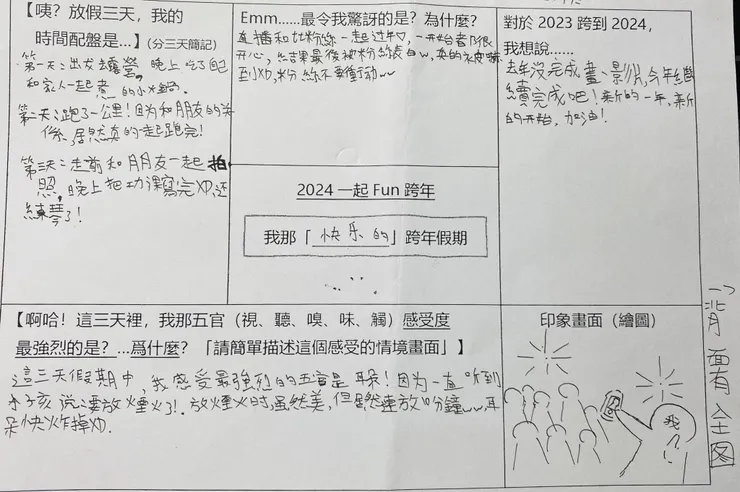 【咦？放假三天，我的
時間配盤是…】(分三天簡記)
第一天：出去露營，晚上吃了自己
和家人一起煮的小火鍋。
第二天：跑了一公里！因為和朋友的关
係，居然真的一起跑完！
第三天：去前和朋友一起拍
照，晚上把功課寫完
練琴了！
Emm……最令我驚訝的是？為什麼？
直播和比粉絲一起过年♡，一开始者很
开心，結果最後被粉絲表白w，真的
到，粉絲不要衝动w
對於 2023 跨到 2024，
我想說……
去年没完成畫、影片，今年繼
續完成吧！新的一年，新
的开始，加油！
2024 一起 Fun 跨年
我那「快乐的」跨年假期
【啊哈！這三天裡，我那五官（視、聽、嗅、味、觸）感受度
最強烈的是？…爲什麼？「請簡單描述這個感受的情境畫面」】
這三天假期中，我感受最強烈的五官是耳朵！因为一直听到
小孩說：要放煙火了！放煙火时，虽然美，但居然連放10分鐘w，耳
朵快炸掉
印象畫面（繪圖）
我
背面有全图